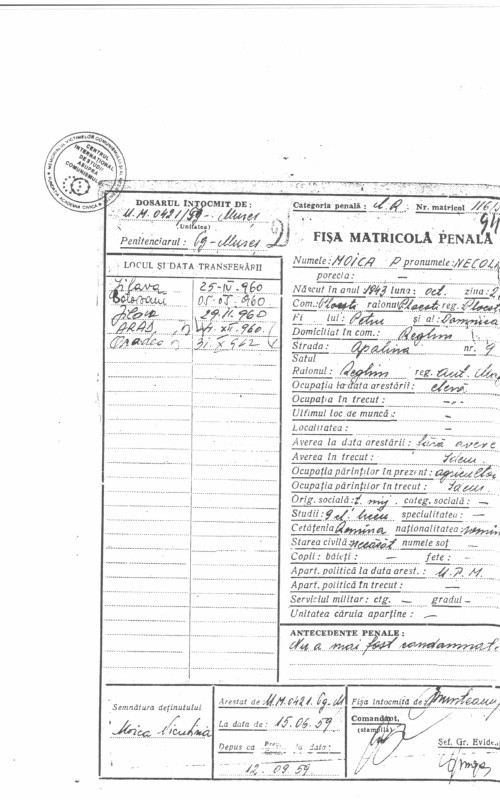 MEMORIALUL VICTIMELOR COMUNISMULUI
FUNDAȚIA ACADEMIA CIVICĂ
CENTRUL
INTERNAȚIONAL
DE STUDII
ASUPRA
COMUNISMULUI
DOSARUL ÎNTOCMIT DE:
U.M. 0421/59 - Mureș
(Unitatea)
Penitenciarul: Tg-Mureș
LOCUL ȘI DATA TRANSFERĂRII
Jilava 25-IV-960
Botoșani 05.05.960
Jilava 29.11.960
ARAD 4.XII.960.
Oradea 31.X.962
Categoria penală: C.R. Nr. matricol 116/
FIȘA MATRICOLĂ PENALĂ
Numele: MOICA P pronumele: NECOLA
porecla: —
Născut în anul 1943 luna: oct. ziua: 2
Com: Ploești raionul Ploești reg. Ploești
Fi lui: Petru și al: Domnica
Domiciliat în com.: Reghin
Strada: Apalina nr. 9
Satul
Raionul: Reghin reg. Aut. Mag
Ocupația la data arestării: elevă
Ocupația în trecut: -„-
Ultimul loc de muncă: —
Localitatea: —
Averea la data arestării: fără avere
Averea în trecut: Idem
Ocupația părinților în prezent: agricultor
Ocupația părinților în trecut: Idem
Orig. socială: ț. mij. categ. socială: —
Studii: 9 cl. liceu specialitatea: —
Cetățenia Romînă naționalitatea: romîn
Starea civilă necăsăt numele soț —
Copii: băieți: — fete: —
Apart. politică la data arest.: U.T.M.
Apart. politică în trecut: —
Serviciul militar: ctg. — gradul —
Unitatea căruia aparține: —
ANTECEDENTE PENALE:
Nu a mai fost condamnată
Semnătura deținutului
Moica Niculina
Arestat de: U.M. 0421. Tg-M
La data de: 15.06.59.
Depus ca la data:
12.09.59
Fișa întocmită de: Munteanu
Comandant,
(stampila)
Șef. Gr. Evide